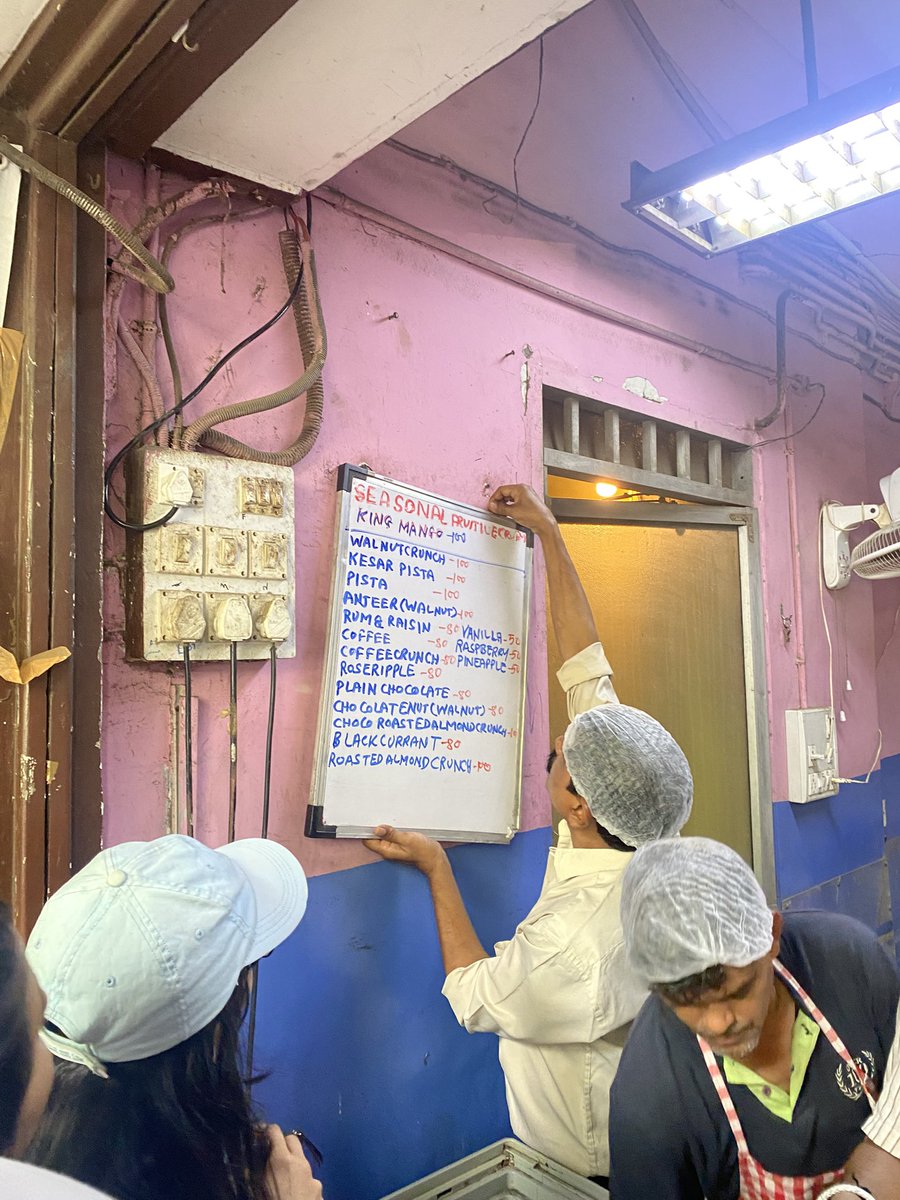 SEASONAL FRUIT ICECREAM
KING MANGO -100
WALNUTCRUNCH -100
KESAR PISTA -100
PISTA -100
ANJEER (WALNUT) -100
RUM & RAISIN -80 VANILLA -50
COFFEE -80 RASPBERRY -50
COFFEECRUNCH -80 PINEAPPLE -50
ROSERIPPLE -80
PLAIN CHOCOLATE -80
CHOCOLATENUT (WALNUT) -80
CHOCO ROASTEDALMONDCRUNCH
BLACKCURRANT -80
ROASTEDALMONDCRUNCH -100